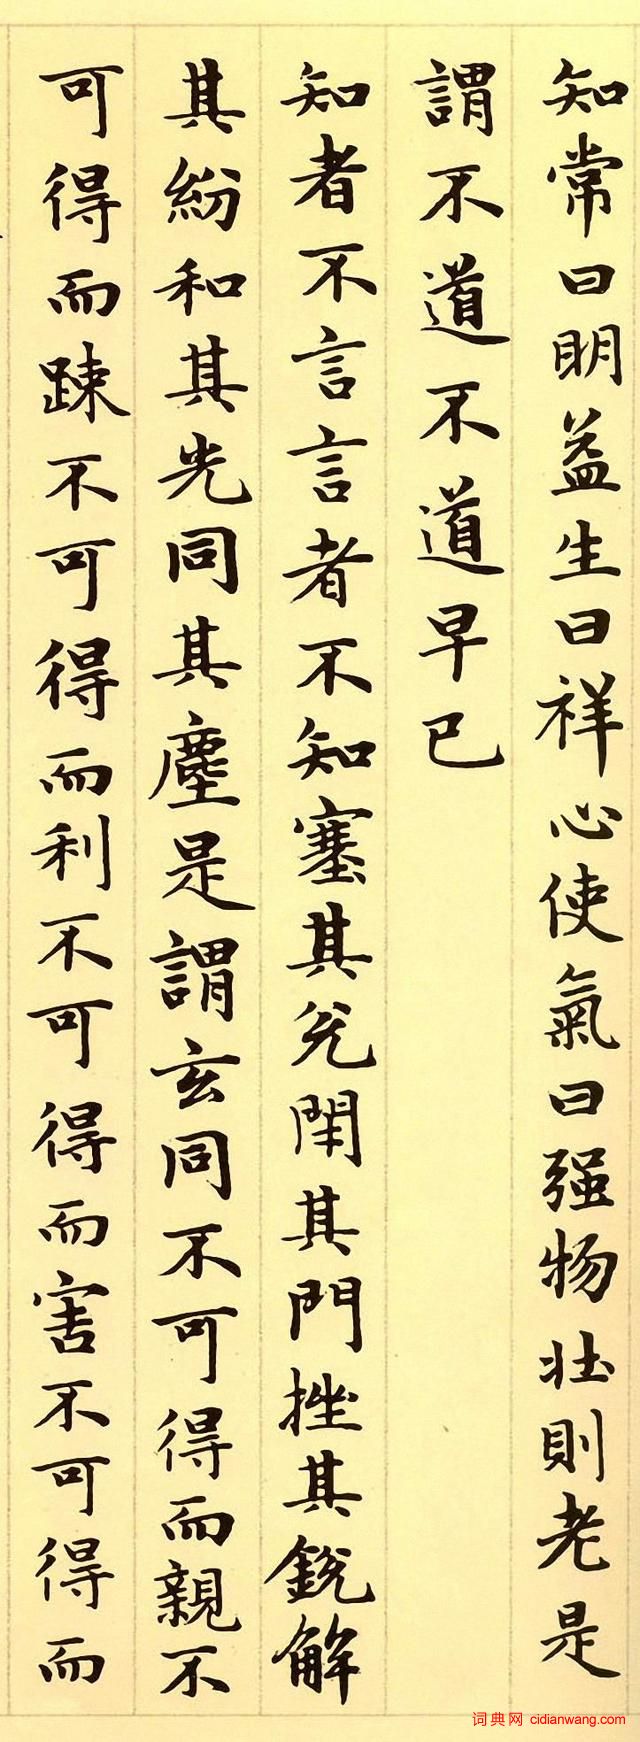 知常曰明益生曰祥心使氣曰强物壯則老是
謂不道不道早已
知者不言言者不知塞其兊閇其門挫其銳解
其紛和其光同其塵是謂玄同不可得而親不
可得而踈不可得而利不可得而害不可得而
词典网 cidianwang.com